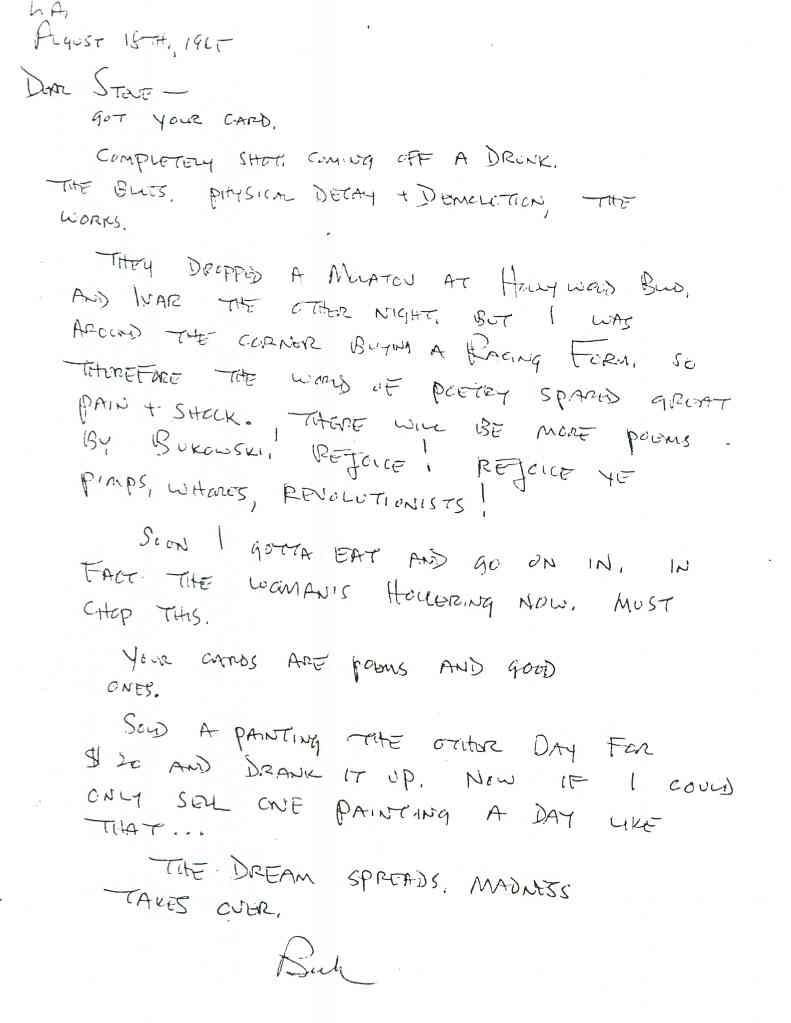 L.A.,
August 18th, 1965
Dear Steve —
Got your card.
Completely shot. Coming off a drunk.
The blues. Physical decay + demolition, the
works.
They dropped a Molotov at Hollywood Blvd.
and Ivar the other night. But I was
around the corner buying a Racing Form. So
therefore the world of poetry spared great
pain + shock. There will be more poems
by Bukowski! Rejoice! Rejoice ye
pimps, whores, revolutionists!
Soon I gotta eat and go on in. In
fact the woman's hollering now. Must
chop this.
Your cards are poems and good
ones.
Sold a painting the other day for
$20 and drank it up. Now if I could
only sell one painting a day like
that...
The dream spreads. Madness
takes over.
Buk